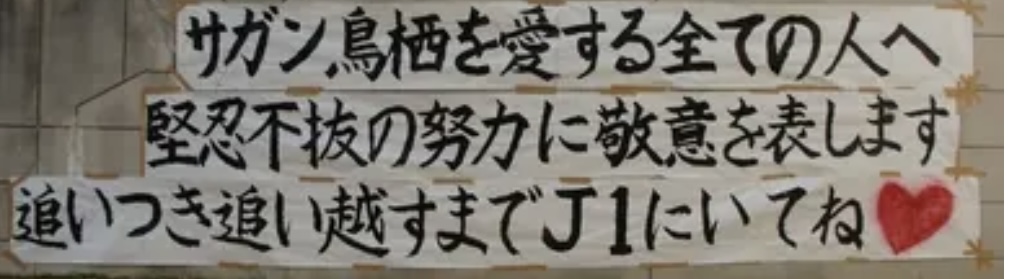 サガン鳥栖を愛する全ての人へ
堅忍不抜の努力に敬意を表します
追いつき追い越すまでJ1にいてね❤